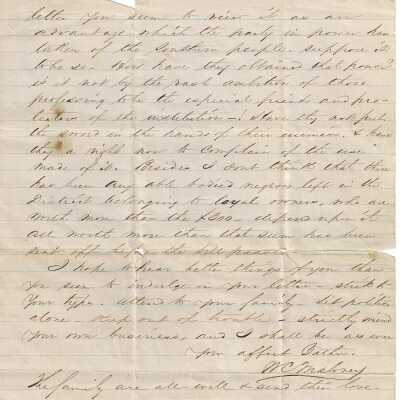 letter you seem to view it as an
advantage which the party in power has
taken of the Southern people. suppose it
to be so. How have they obtained that power?
is it not by the rash ambition of those
professing to be the especial friends and pro-
tectors of the institution - Have they not put
the sword in the hands of their enemies. & have
they a right now to complain of the use
made of it. Besides I dont think that there
has been any able bodied negroes left in the
District belonging to loyal owners, who are
worth more than the $300. depend upon it
all worth more than that sum has been
run off before the bill passed
I hope to hear better things of you than
you seem to indulge in your letter - stick to
Your type. attend to your family let politics
alone - keep out of trouble - strictly mind
your own business, and I shall be as ever
your affect Father.
WC Mabrey
The family are all well & send their love.